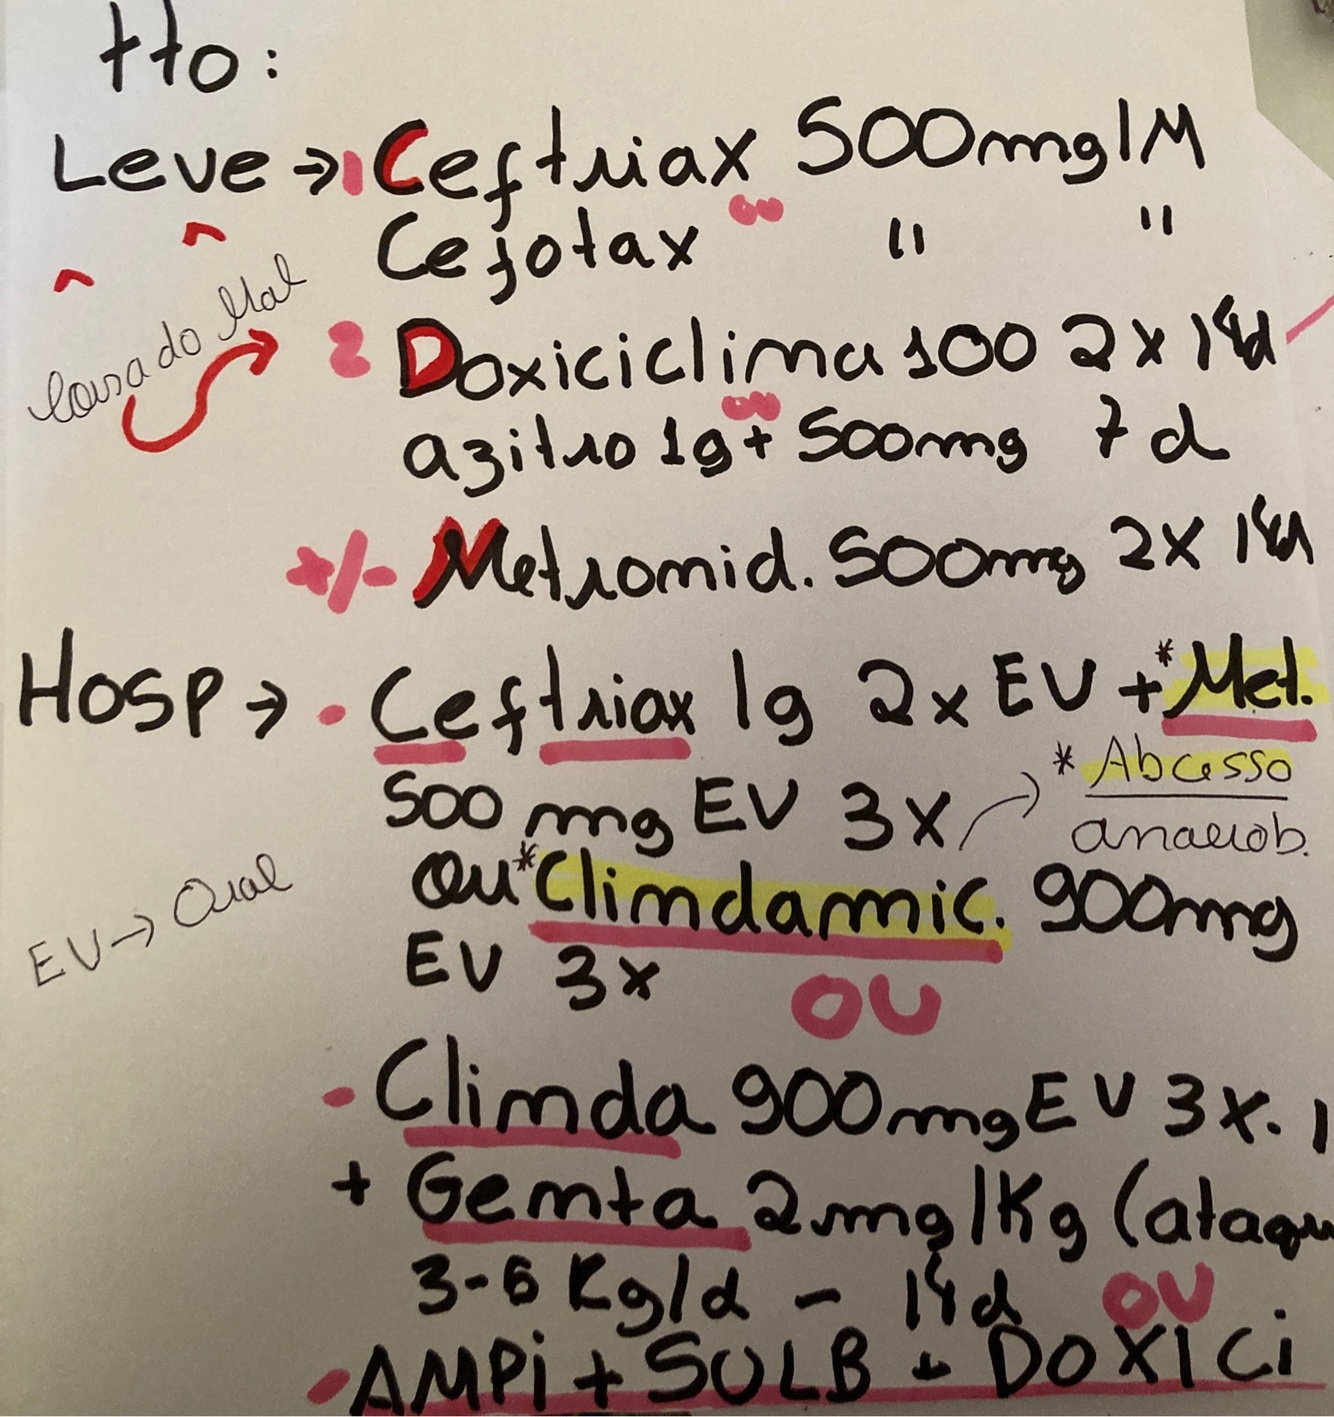 tto:
Leve → 1 Ceftriax 500mg IM
ou
Cefotax " "
Causado Mal
2 Doxiciclina 100 2x 14d
ou
azitro 1g + 500mg 7d
+/- Metronid. 500mg 2x 14d
Hosp → • Ceftriax 1g 2x EV + *Met.
500 mg EV 3x → * Abcesso
anaerob.
ou *Clindamic. 900mg
EV → Oral
EV 3x OU
- Clinda 900mg EV 3x.
+ Genta 2mg/Kg (ataqu
3-6 Kg/d - 14d OU
• AMPi + SULB + DOXICi